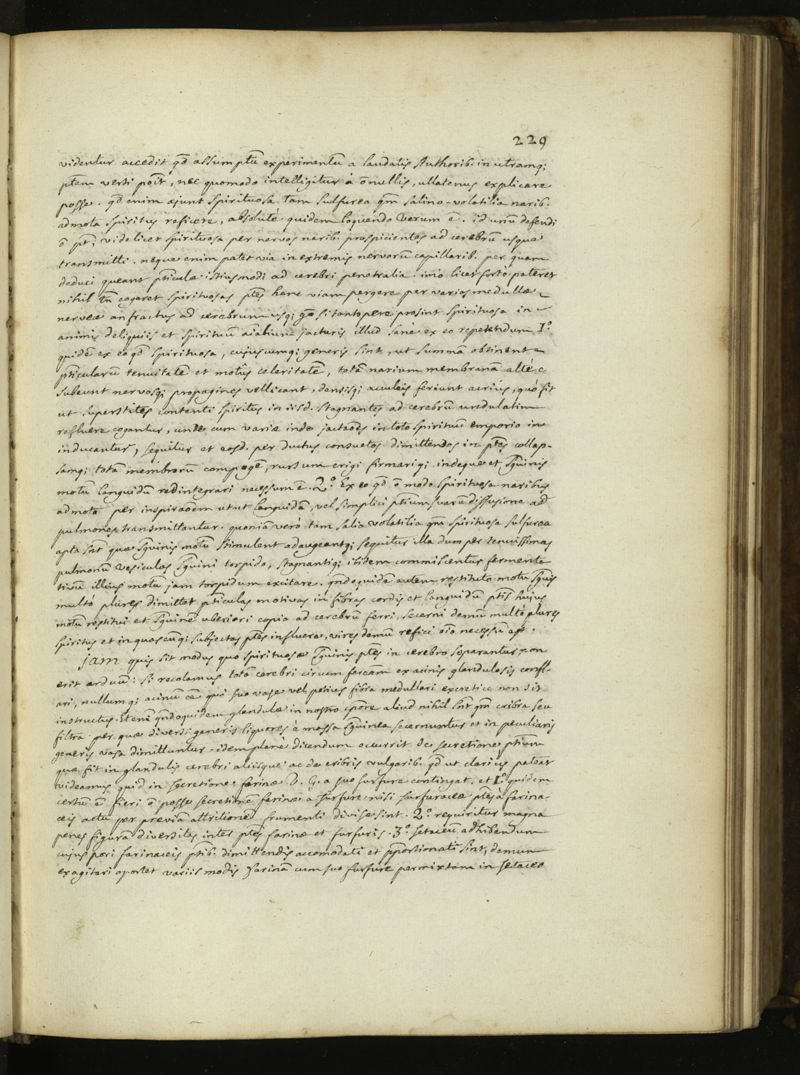 229
videntur accedit qd assumptū experimentū a laudatis Authorib. in utramq;
ptem verti poīt, nec quomodo intelligitur à ōnullis, ullatenus explicare
posse. qd enim ajunt spirituosa tam sulfurea qm salino-volatilia narib.
admota spiritus reficere, absolutè quidem loquendo verum ē. id unū defendi
ō pt, videlicet spirituosa per nervos naribꝰ prospicientes ad cerebrū usque
transmitti. neque enim patet via in extremis nervorū capillarib. per quam
deduci queant pticulæ istiusmodi ad cerebri penetralia. imò licet fortè pateret
nihil tn̄ cogeret spirituosas ptes hanc viam pergere per varios medullæ
nerveæ anfractus ad cerebrum usq; qm si tantopere prosint spirituosa in
animis deliquiis et spirituū aīalium jacturis illud sane ex eo repetendum, 1.º
quidē ex eo qd spirituosa, cujuscumq; generis sint, ut summā obtinent
pticularū tenuitatē et motûs celeritatē, totā narium membranā alte
subeunt nervosq; propagines vellicant, densisq; aculeis feriunt acrius, quò fit
ut superstites contenti spiritus in iisd. stagnantes ad cerebrū undulatim
refluere cogantur, unde cum variæ inde jactaōes in toto spirituū emporio
inducantur, sequitur et eosd. per ductus consuetos dimittendos in ptes collap-
samq; totā membrorū compagē, rursum erigi firmariq; indeque et sguinis
motū languidū redintegrari necessum ē. 2.º Ex eo qd ō modo spirituosa naribus
admota per inspiraōem utut languidā, vel simplici ptium suarū diffusione ad
pulmones transmittantur. quoniā verò tam salia volatilia qm spirituosa sulfurea
apta sint quæ sguinis motū stimulent adaugeantq; sequitur illa dum per tenuissimas
pulmonū vesiculas sguini torpido, stagnantiq; ibidem commiscentur fermenta-
tivū illius motū jam torpidum excitare. qndoquidē autem restituto motu sguis
multò plures dimittat pticulas motivas in fibras cordis et languidū ptis hujus
motū restitui et sguinē uberiori copia ad cerebrū ferri, secerni demū multò plures
spiritus et in quascūq; subjectas ptes influere, vires demū refici ōīo necessū est.
Jam quis sit modus quo spirituosæ sguinis ptes in cerebro separantur non
erit arduū: si recolamus totā cerebri circumferētiam ex acinis glandulosis confl-
ari, nullumq; acinū eē qui suo vase vel potius fibra medullari excretice non sit
instructus. Etenī qndoquidem glandulæ in nostro cpore aliud nihil sint qm cribra seu
filtra per quæ diversi generis liquores è massa sguinea secernuntur et in peculiaris
generis vasa dimittuntur. idem planè dicendum occurrit de secretione ptium
quæ fit in glandulis cerebri aliisque ac de cribris vulgarib. qd ut clarius pateat
videamus quid in secretione farinæ V. G. a suo furfure contingat, et 1.º quidem
certū ē fieri ō posse secretionē farinæ a furfure nisi furfuraceæ ptes à farina-
ceis actu per præviā attritionem frumenti divisæ sint. 2.º requiritur magna
penes figurā diversitas inter ptes farinæ et furfuris. 3.º setaceū adhibendum
cujus pori farinaceis ptib. dimittendis accomodati et pportionati sint, demum
exagitari oportet variis modis farinā cum suo furfure permixtam in setaceo